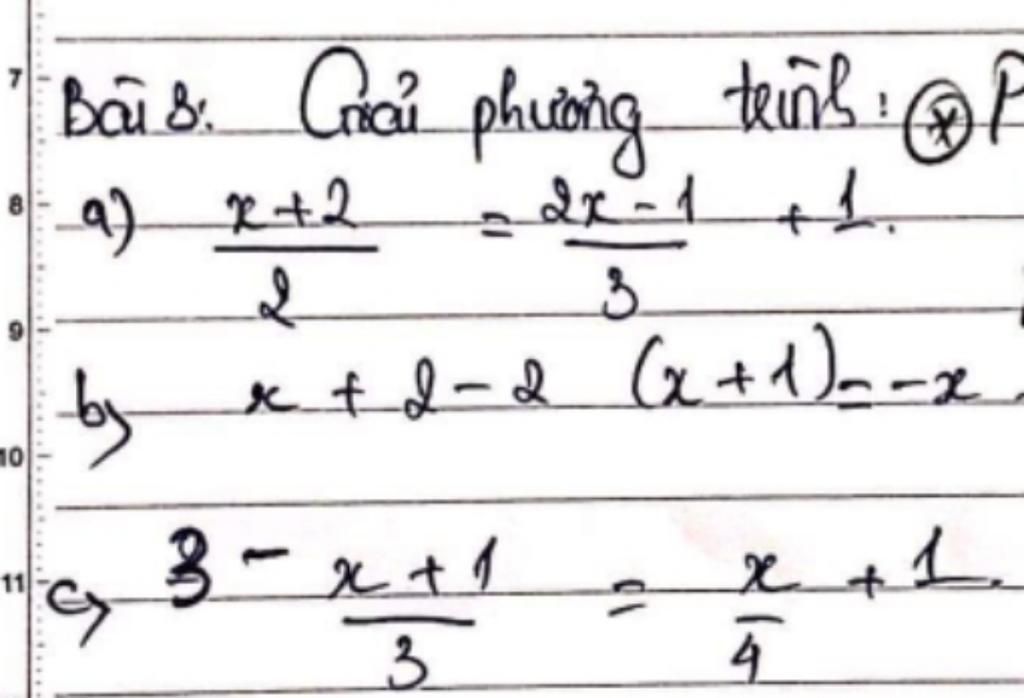 7
Bài 3: Giải phương trình: (*) P
8
a) x+2/2 = 2x-1/3 + 1.
9
b) x + 2 - 2 (x + 1) = -x.
10
11
c) 3 - x+1/3 = x/4 + 1.